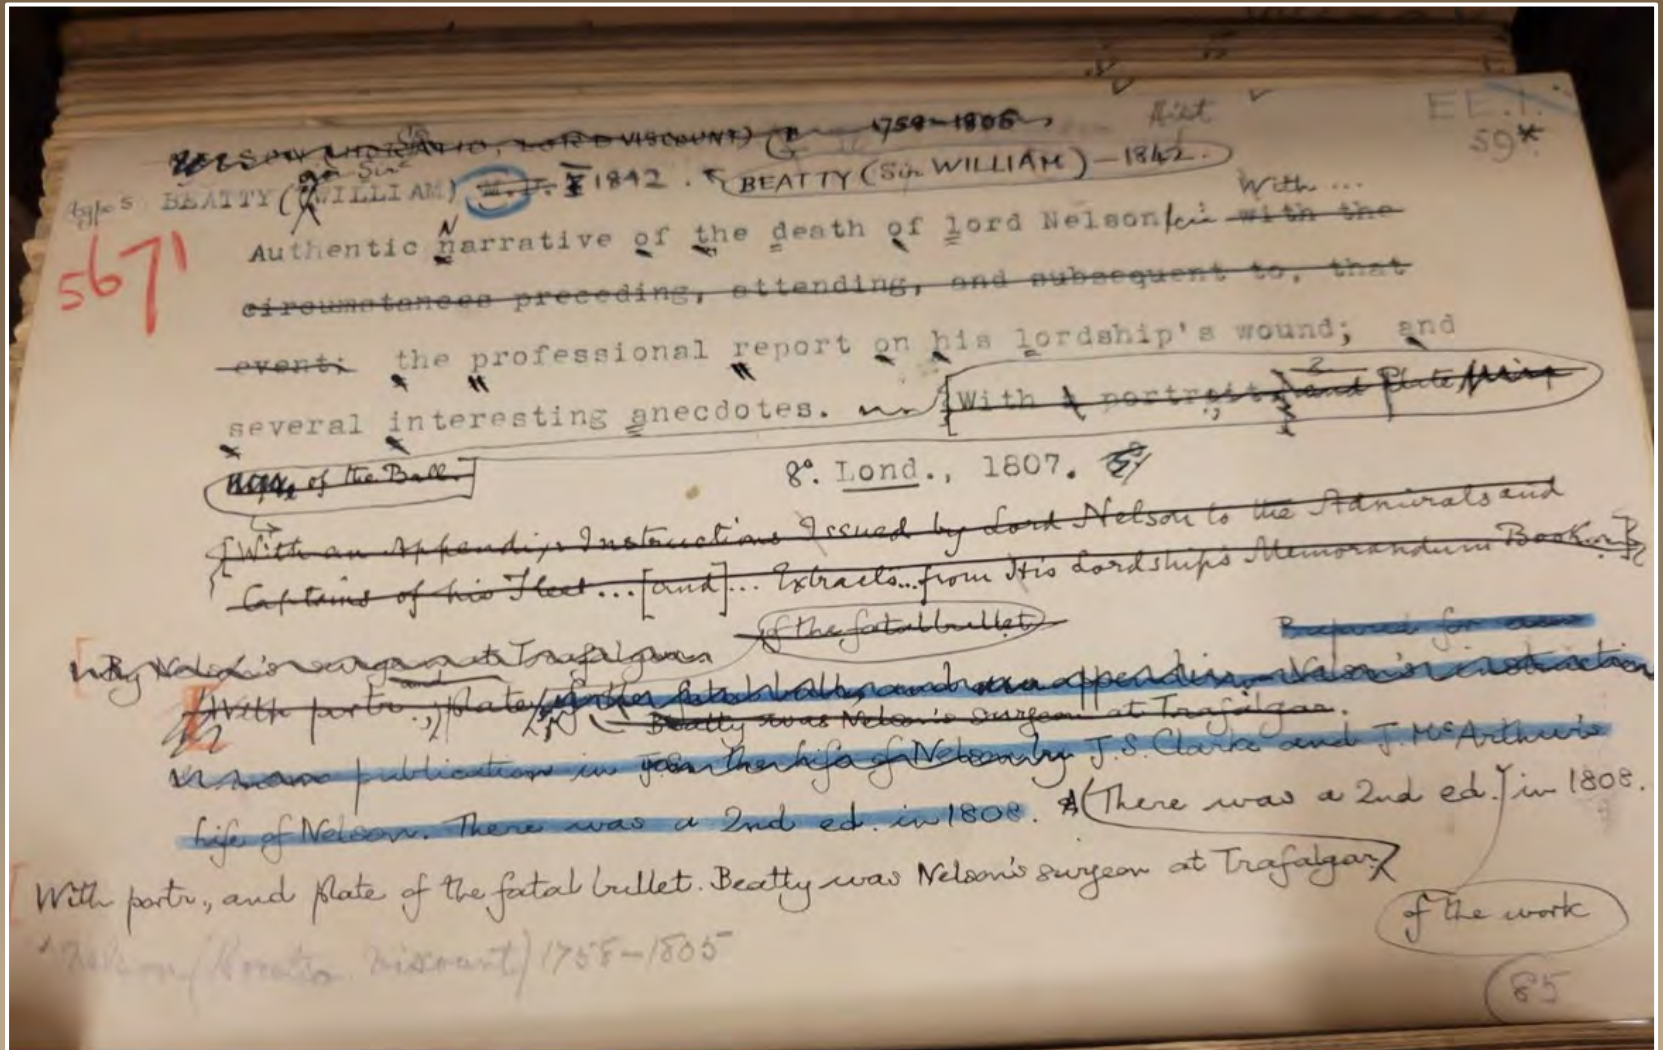 EE.1.
59*
NELSON (HORATIO, LORD VISCOUNT) 1758-1805,
Sir
types BEATTY (WILLIAM) M.D. 1842. BEATTY (Sir WILLIAM) - 1842.
N With ...
Authentic narrative of the death of lord Nelson with the
5671
circumstances preceding, attending, and subsequent to, that
event: the professional report on his lordship's wound; and
several interesting anecdotes. [With portrait, and Plate
of the Ball.]
8°. Lond., 1807.
[With an Appendix, Instructions Issued by Lord Nelson to the Admirals and
Captains of his Fleet ... [and] ... Extracts ... from His Lordship's Memorandum Book.]
of the fatal bullet
Prepared for
By Nelson's surgeon at Trafalgar
and
With portr., plate of the fatal ball, and an appendix, Nelson's instruction
Beatty was Nelson's surgeon at Trafalgar.
publication in the life of Nelson by J.S. Clarke and J. McArthur's
Life of Nelson. There was a 2nd ed. in 1808. (There was a 2nd ed.) in 1808.
With portr., and plate of the fatal bullet. Beatty was Nelson's surgeon at Trafalgar
of the work
Nelson (Horatio Viscount) 1758-1805
85